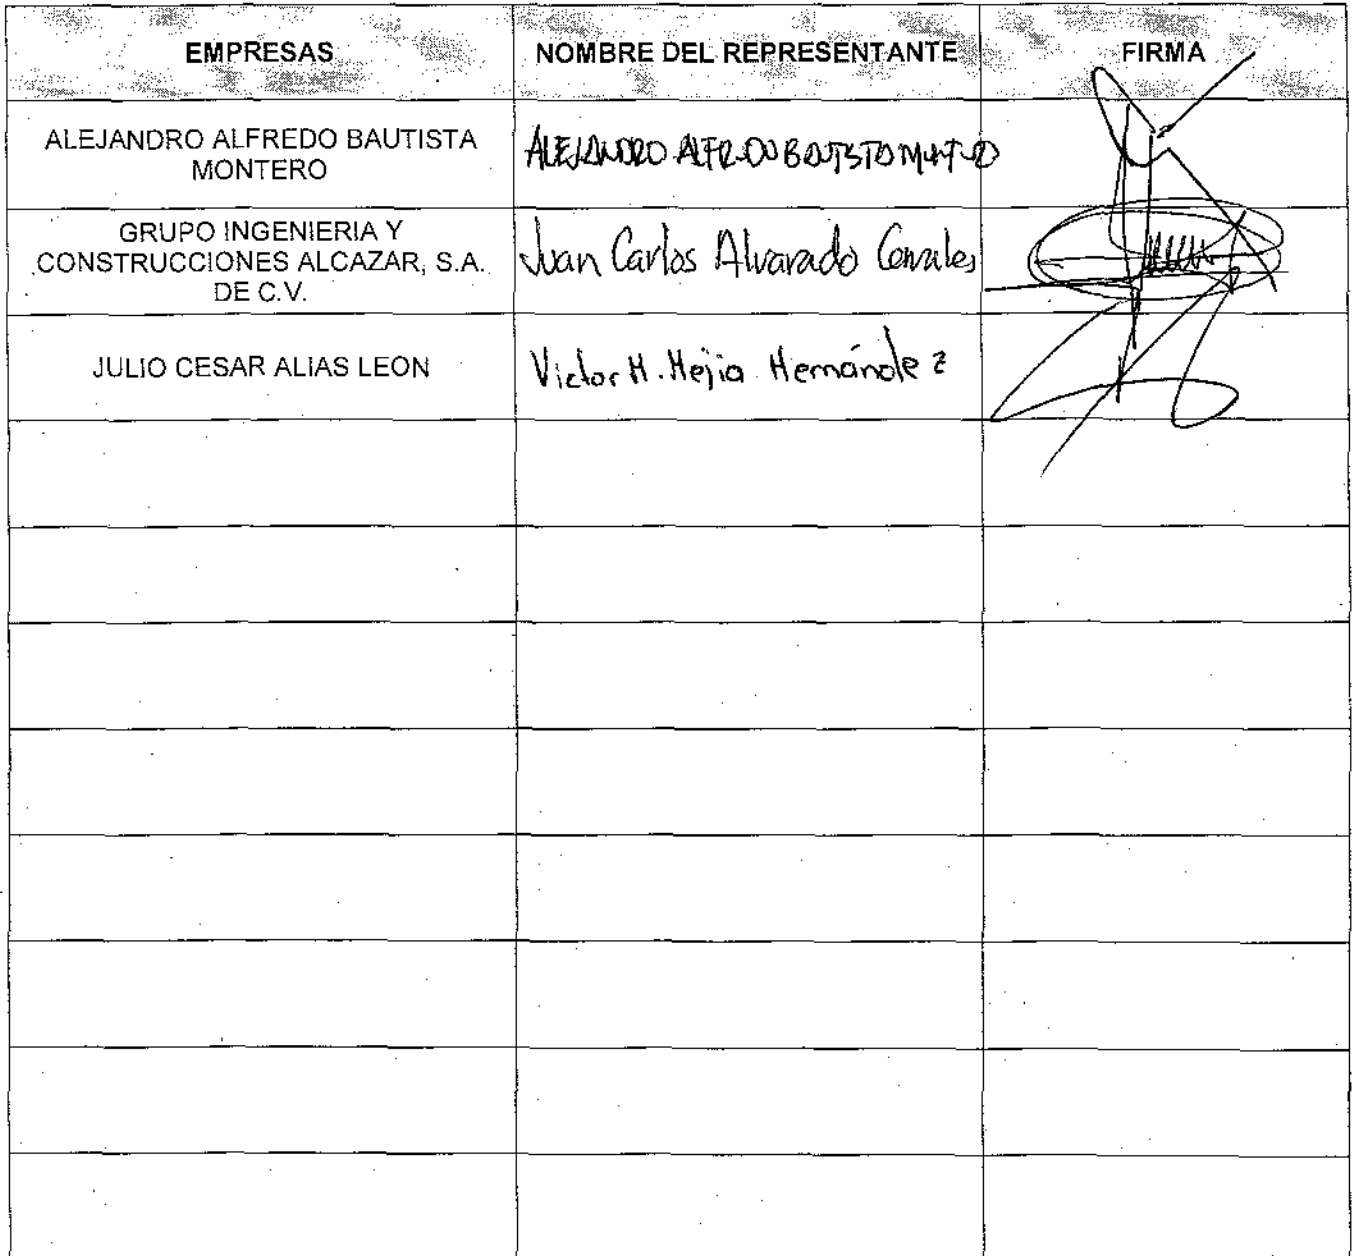 EMPRESAS
NOMBRE DEL REPRESENTANTE
FIRMA
ALEJANDRO ALFREDO BAUTISTA
MONTERO
ALEJANDRO
GRUPO INGENIERIA Y
CONSTRUCCIONES ALCAZAR, S.A.
DE C.V.
Juan Carlos Alvarado
JULIO CESAR ALIAS LEON
Victor H. Mejia Hernández